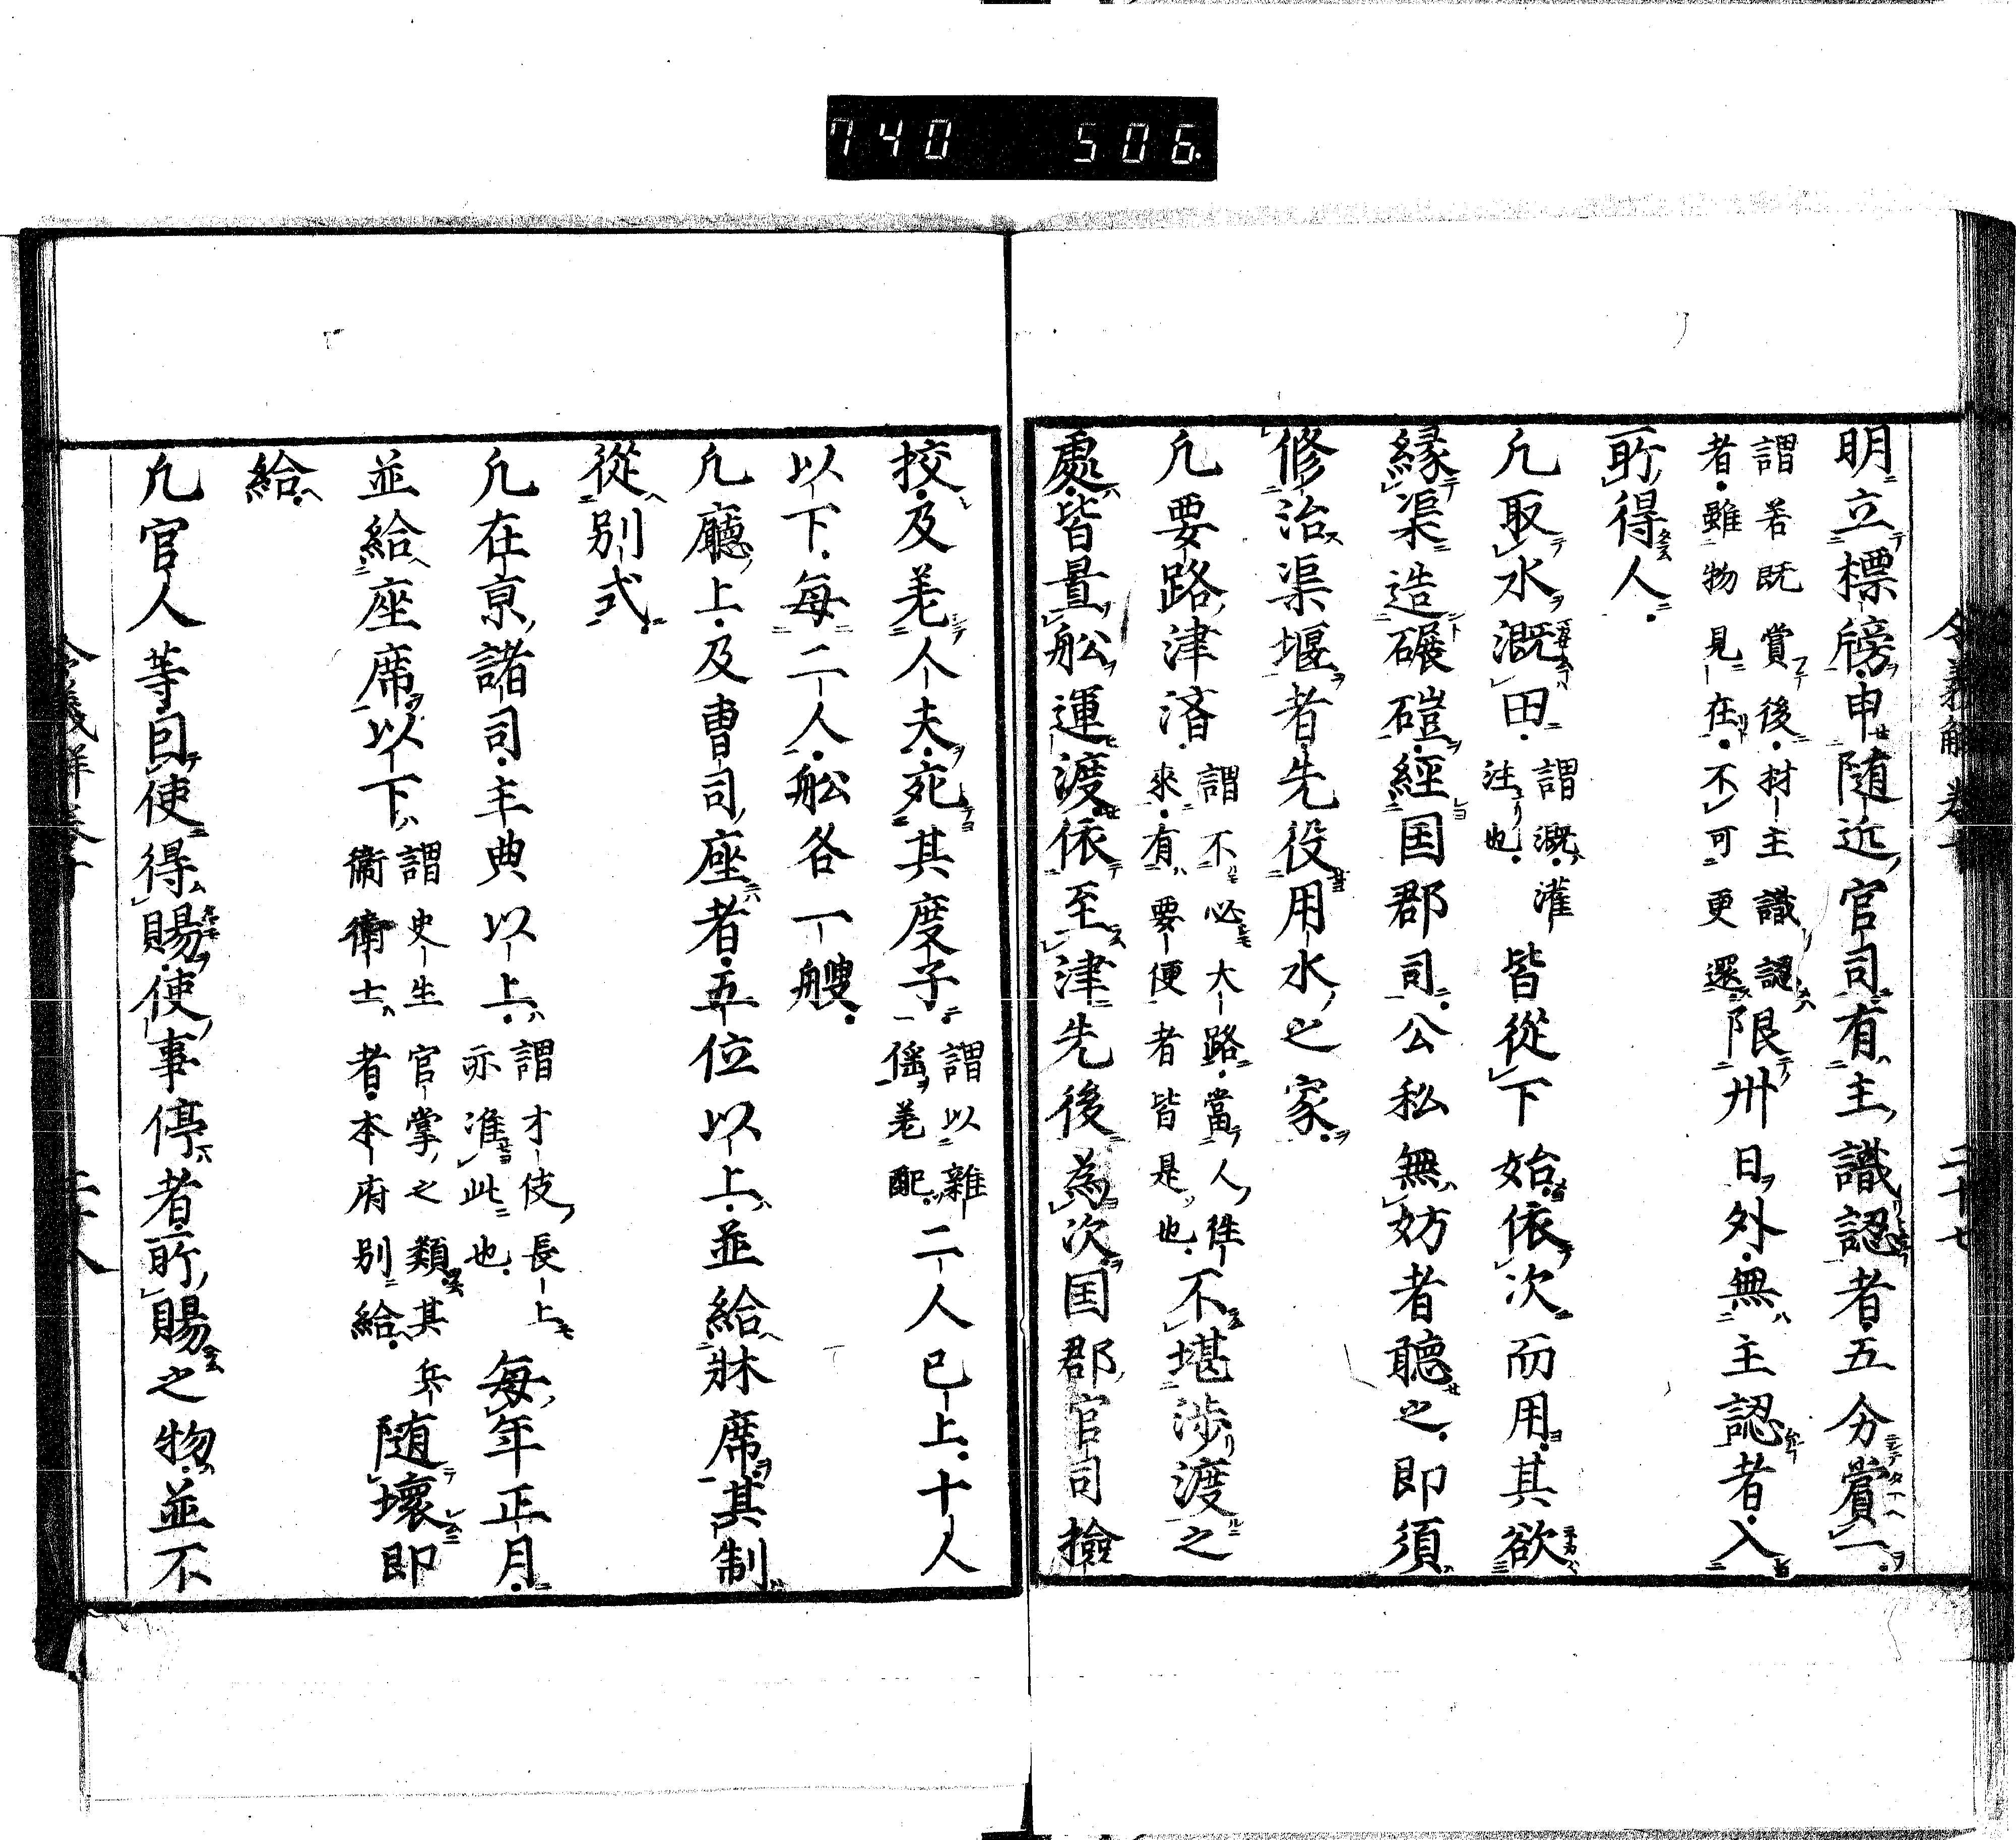 740 506
明立標牓申随近官司有主識認者五分賞一
謂若既賞後材主識認
者雖物見在不可更還
限卅日外無主認者入
所得人
凢取水溉田
謂溉灌
注也
皆從下始依次而用其欲
縁渠造碾磑經国郡司公私無妨者聴之即須
修治渠堰者先役用水之家
凢要路津済
謂不必大路當人徃
來有要便者皆是也
不堪渉渡之
處皆量舩運渡依至津先後為次国郡官司撿
挍及差人夫死其度子
謂以雜
徭差配
二人已上十人
以下每二人舩各一艘
凢廳上及曹司座者五位以上並給牀席其制
從別式
凢在京諸司主典以上
謂才伎長上
亦准此也
每年正月
並給座席以下
謂史生官掌之類其兵
衞衞士者本府別給
随壞即
給
凢官人等囙使得賜使事停者所賜之物並不